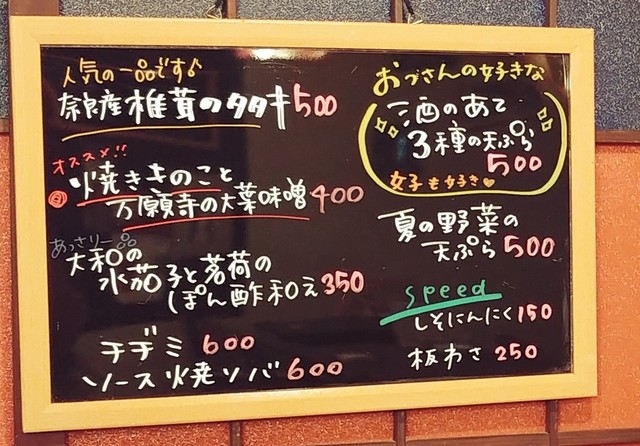 人気の一品です♪
奈良産椎茸のタタキ500
オススメ!!
火焼ききのこと
万願寺の大葉味噌400
あっさりー
大和の
水茄子と茗荷の
ぽん酢和え350
チヂミ 600
ソース焼ソバ600
おっさんの好きな
酒のあて
3種の天ぷら
500
女子も好き♥
夏の野菜の
天ぷら500
speed
しそにんにく150
板わさ 250